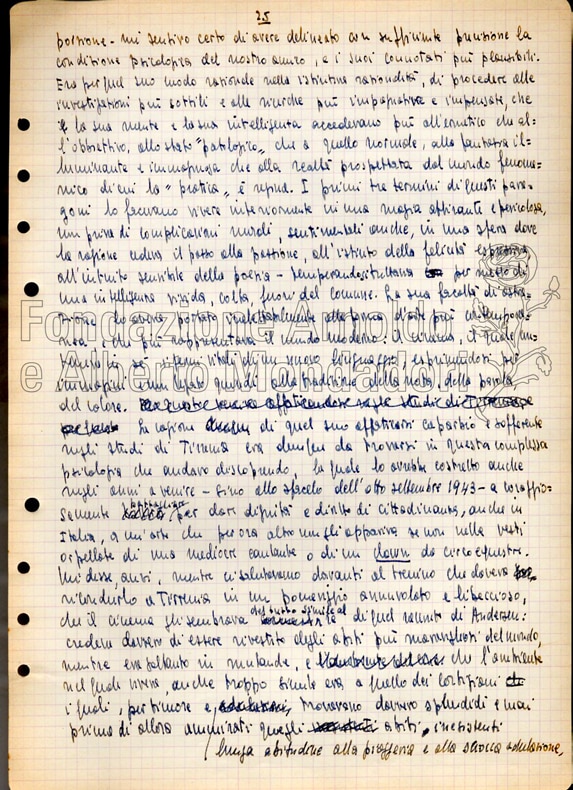 25
porzione - mi sentivo certo di avere delineato con sufficiente precisione la
condizione psicologica del nostro amico, e i suoi connotati più plausibili.
Era per quel suo modo razionale nella istintiva razionalità, di procedere alle
investigazioni più sottili e alle ricerche più impensate, che
la sua mente e la sua intelligenza accedevano più all'ermetico che al-
l'obbiettivo, allo stato "patologico" che a quello normale, alla fantasia il-
luminante e che alla realtà prospettata dal mondo fenome-
nico di cui la "pratica" è I primi tre termini di questi para-
goni lo facevano vivere interiormente in una magia e pericolosa,
non priva di complicazioni morali, sentimentali anche, in una sfera dove
la ragione cedeva il passo alla passione, all'istinto della felicità espressiva
all'intuito sensibile della poesia - per mezzo di
una intelligenza rigida, colta, fuori del comune. La sua facoltà di
lo aveva portato alla forma d'arte più contempora-
nea e che più rappresentava il mondo moderno: il cinema, il quale
in sé i termini vitali di un nuovo linguaggio, esprimendosi per
immagini e non legato quindi alla tradizione della nota, della parola
del colore.
La ragione di quel suo affaticarsi caparbio e sofferente
negli studi di Tirrenia era dunque da trovarsi in questa complessa
psicologia che andavo discoprendo, la quale lo avrebbe costretto anche
negli anni a venire - fino allo sfacelo dell'otto settembre 1943 - a coraggio-
samente per dare dignità e diritto di cittadinanza, anche in
Italia, a un'arte che per ora altro non gli appariva se non nelle vesti
orpellate di una mediocre cantante o di un clown da circo equestre.
Mi disse, anzi, mentre ci salutavamo davanti al trenino che doveva
ricondurlo a Tirrenia in un pomeriggio annuvolato e libeccioso,
che il cinema gli sembrava di quel racconto di Andersen:
credeva davvero di essere rivestito degli abiti più meravigliosi del mondo,
mentre era soltanto in mutande, e che l'ambiente
nel quale viveva, anche troppo simile era a quello dei cortigiani
i quali, per timore e trovavano davvero splendidi e mai
prima di allora ammirati quegli abiti inesistenti
lunga abitudine alla piaggeria e alla sciocca adulazione,
Fondazione Arnoldo
e Alberto Mondadori